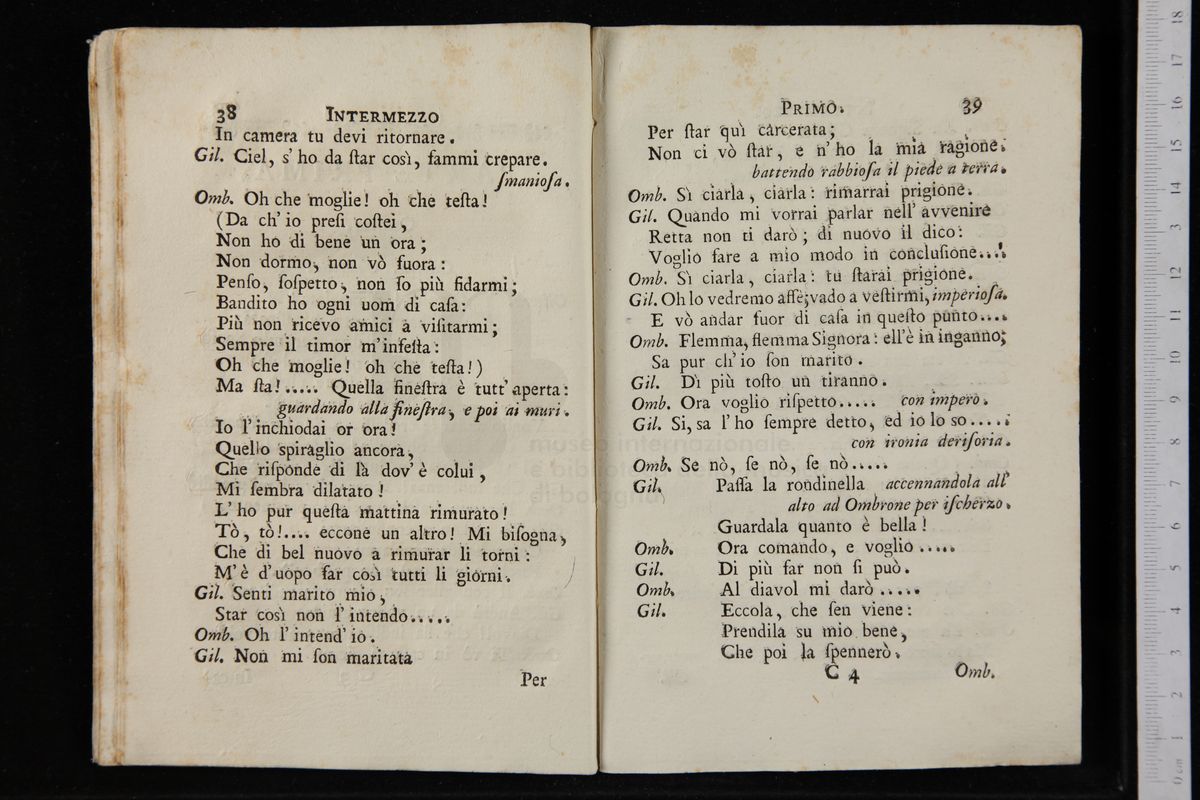 38 INTERMEZZO
In camera tu devi ritornare.
Gil. Ciel, s' ho da ſtar così, fammi crepare.
ſmanioſa.
Omb. Oh che moglie! oh che teſta!
(Da ch' io preſi coſtei,
Non ho di bene un ora;
Non dormo, non vò fuora:
Penſo, ſoſpetto, non ſo più fidarmi;
Bandito ho ogni uom di caſa:
Più non ricevo amici a viſitarmi;
Sempre il timor m' infeſta:
Oh che moglie! oh che teſta!)
Ma ſta!..... Quella fineſtra è tutt' aperta:
guardando alla fineſtra, e poi ai muri.
Io l' inchiodai or ora!
Quello ſpiraglio ancora,
Che riſponde di là dov' è colui,
Mi ſembra dilatato!
L' ho pur queſta mattina rimurato!
Tò, tò!.... eccone un altro! Mi biſogna,
Che di bel nuovo a rimurar li torni:
M' è d' uopo far così tutti li giorni.
Gil. Senti marito mio,
Star così non l' intendo.....
Omb. Oh l' intend' io.
Gil. Non mi ſon maritata
Per
PRIMO. 39
Per ſtar quì carcerata;
Non ci vò ſtar, e n' ho la mia ragione.
battendo rabbioſa il piede a terra.
Omb. Sì ciarla, ciarla: rimarrai prigione.
Gil. Quando mi vorrai parlar nell' avvenire
Retta non ti darò; di nuovo il dico:
Voglio fare a mio modo in concluſione....
Omb. Sì ciarla, ciarla: tu ſtarai prigione.
Gil. Oh lo vedremo affè; vado a veſtirmi, imperioſa.
E vò andar fuor di caſa in queſto punto....
Omb. Flemma, flemma Signora: ell' è in inganno;
Sa pur ch' io ſon marito.
Gil. Di più toſto un tiranno.
Omb. Ora voglio riſpetto..... con impero.
Gil. Si, sa l' ho ſempre detto, ed io lo so.....
con ironia deriſoria.
Omb. Se nò, ſe nò, ſe nò.....
Gil. Paſſa la rondinella accennandola all'
alto ad Ombrone per iſcherzo.
Guardala quanto è bella!
Omb. Ora comando, e voglio.....
Gil. Di più far non ſi può.
Omb. Al diavol mi darò.....
Gil. Eccola, che ſen viene:
Prendila su mio bene,
Che poi la ſpennerò.
C 4 Omb.
museo internazionale
e biblioteca
di bologna
18 17 16 15 14 13 12 11 10 9 8 7 6 5 4 3 2 1 0 cm